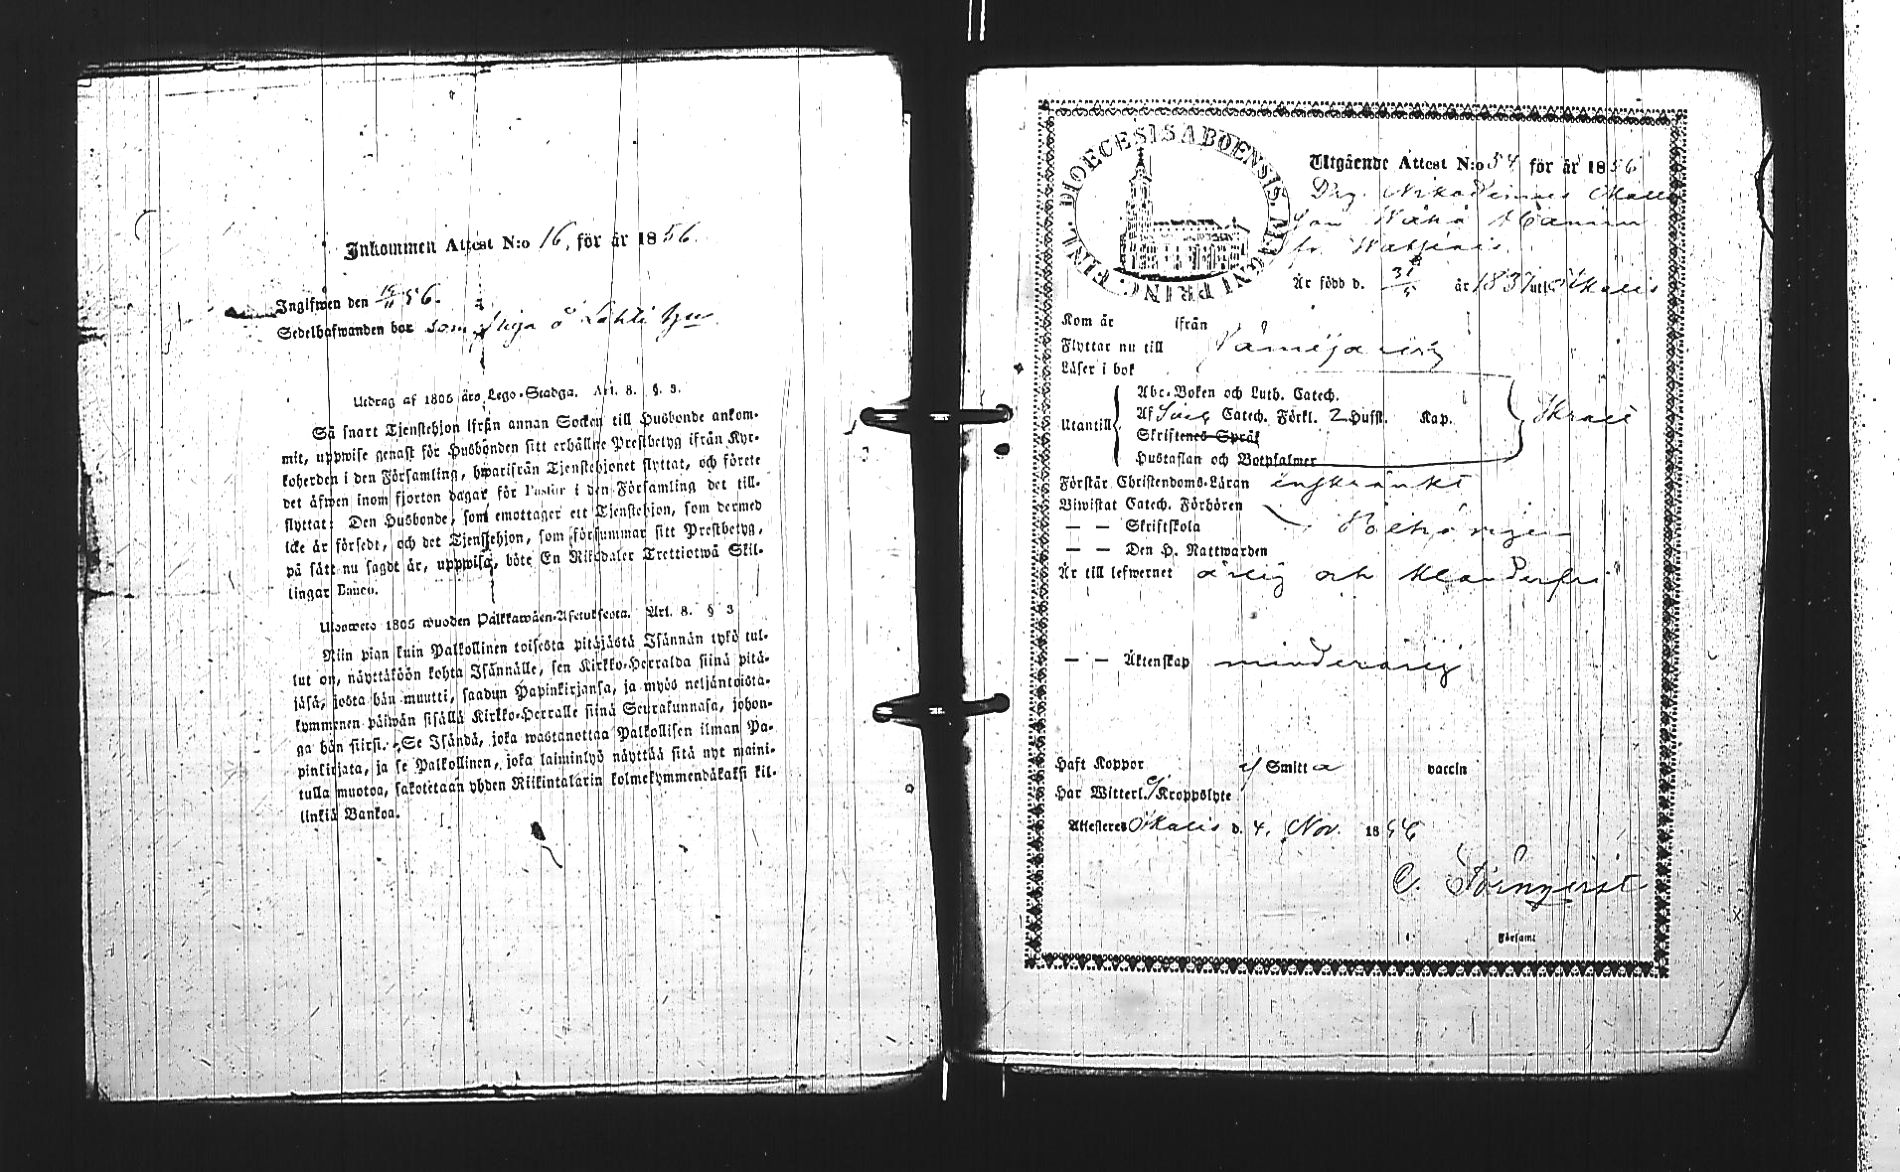 Inkommen Attest N:o 16, för år 1856.
Inglfwen den 19/11 56.
Sedelhafwanden bor som
Utdrag af 1805 års Lego-Stadga. Art. 8. §. 3.
Så snart Tjenstehjon ifrån annan Socken till Husbonde ankom-
mit, uppwise genast för Husbonden sitt erhållne Prestbetyg ifrån Kyr-
koherden i den Församling, hwarifrån Tjenstehjonet flyttat, och förete
det äfwen inom fjorton dagar för Pastor i den Församling det till-
flyttat: Den Husbonde, som emottager ett Tjenstehjon, som dermed
icke är försedt, och det Tjenstehjon, som försummar sitt Prestbetyg,
på sätt nu sagdt är, uppwisa, böte En Riksdaler Trettiotwå Skil-
lingar Banco.
Ulosweto 1805 wuoden Palkkawäen-Asetuksesta. Art. 8. § 3
Niin pian kuin Palkollinen toisesta pitäjästä Isännän tykö tul-
lut on, näyttäköön kohta Isännälle, sen Kirkko-Herralda siinä pitä-
jäsä, josta hän muutti, saadun Papinkirjansa, ja myös neljäntoista-
kymmenen päiwän sisällä Kirkko-Herralle siinä Seurakunnasa, johon-
ga hän siirsi. Se Isändä, joka wastanottaa Palkollisen ilman Pa-
pinkirjata, ja se Palkollinen, joka laiminlyö näyttää sitä nyt maini-
tulla muotoa, sakotetaan yhden Riikintalarin kolmekymmendäkaksi kil-
linkiä Bankoa.
FINL. DIOECESIS ABOENSIS. MAGNI PRINC.
Utgående Attest N:o 54 för år 1856
Är född d. 31/5 år 1837 uti Ikalis
Kom år ifrån
Flyttar nu till
Läser i bok
Abc-Boken och Luth. Catech.
Utantill
Af Catech. Förkl. 2 Hufst. Kap.
Skriftenes Språk
Hustaflan och Botpsalmer
Förstår Christendoms-Läran inskränkt
Biwistat Catech. Förhören
— — Skriftskola
— — Den H. Nattwarden
Är till lefwernet ärlig och klanderfri
— — Äktenskap minderårig
Haft Koppor ej Smitta vaccin
Har Witterl. ej Kroppslyte
Attesteres Ikalis d. 4. Nov. 1856
C.
Församl